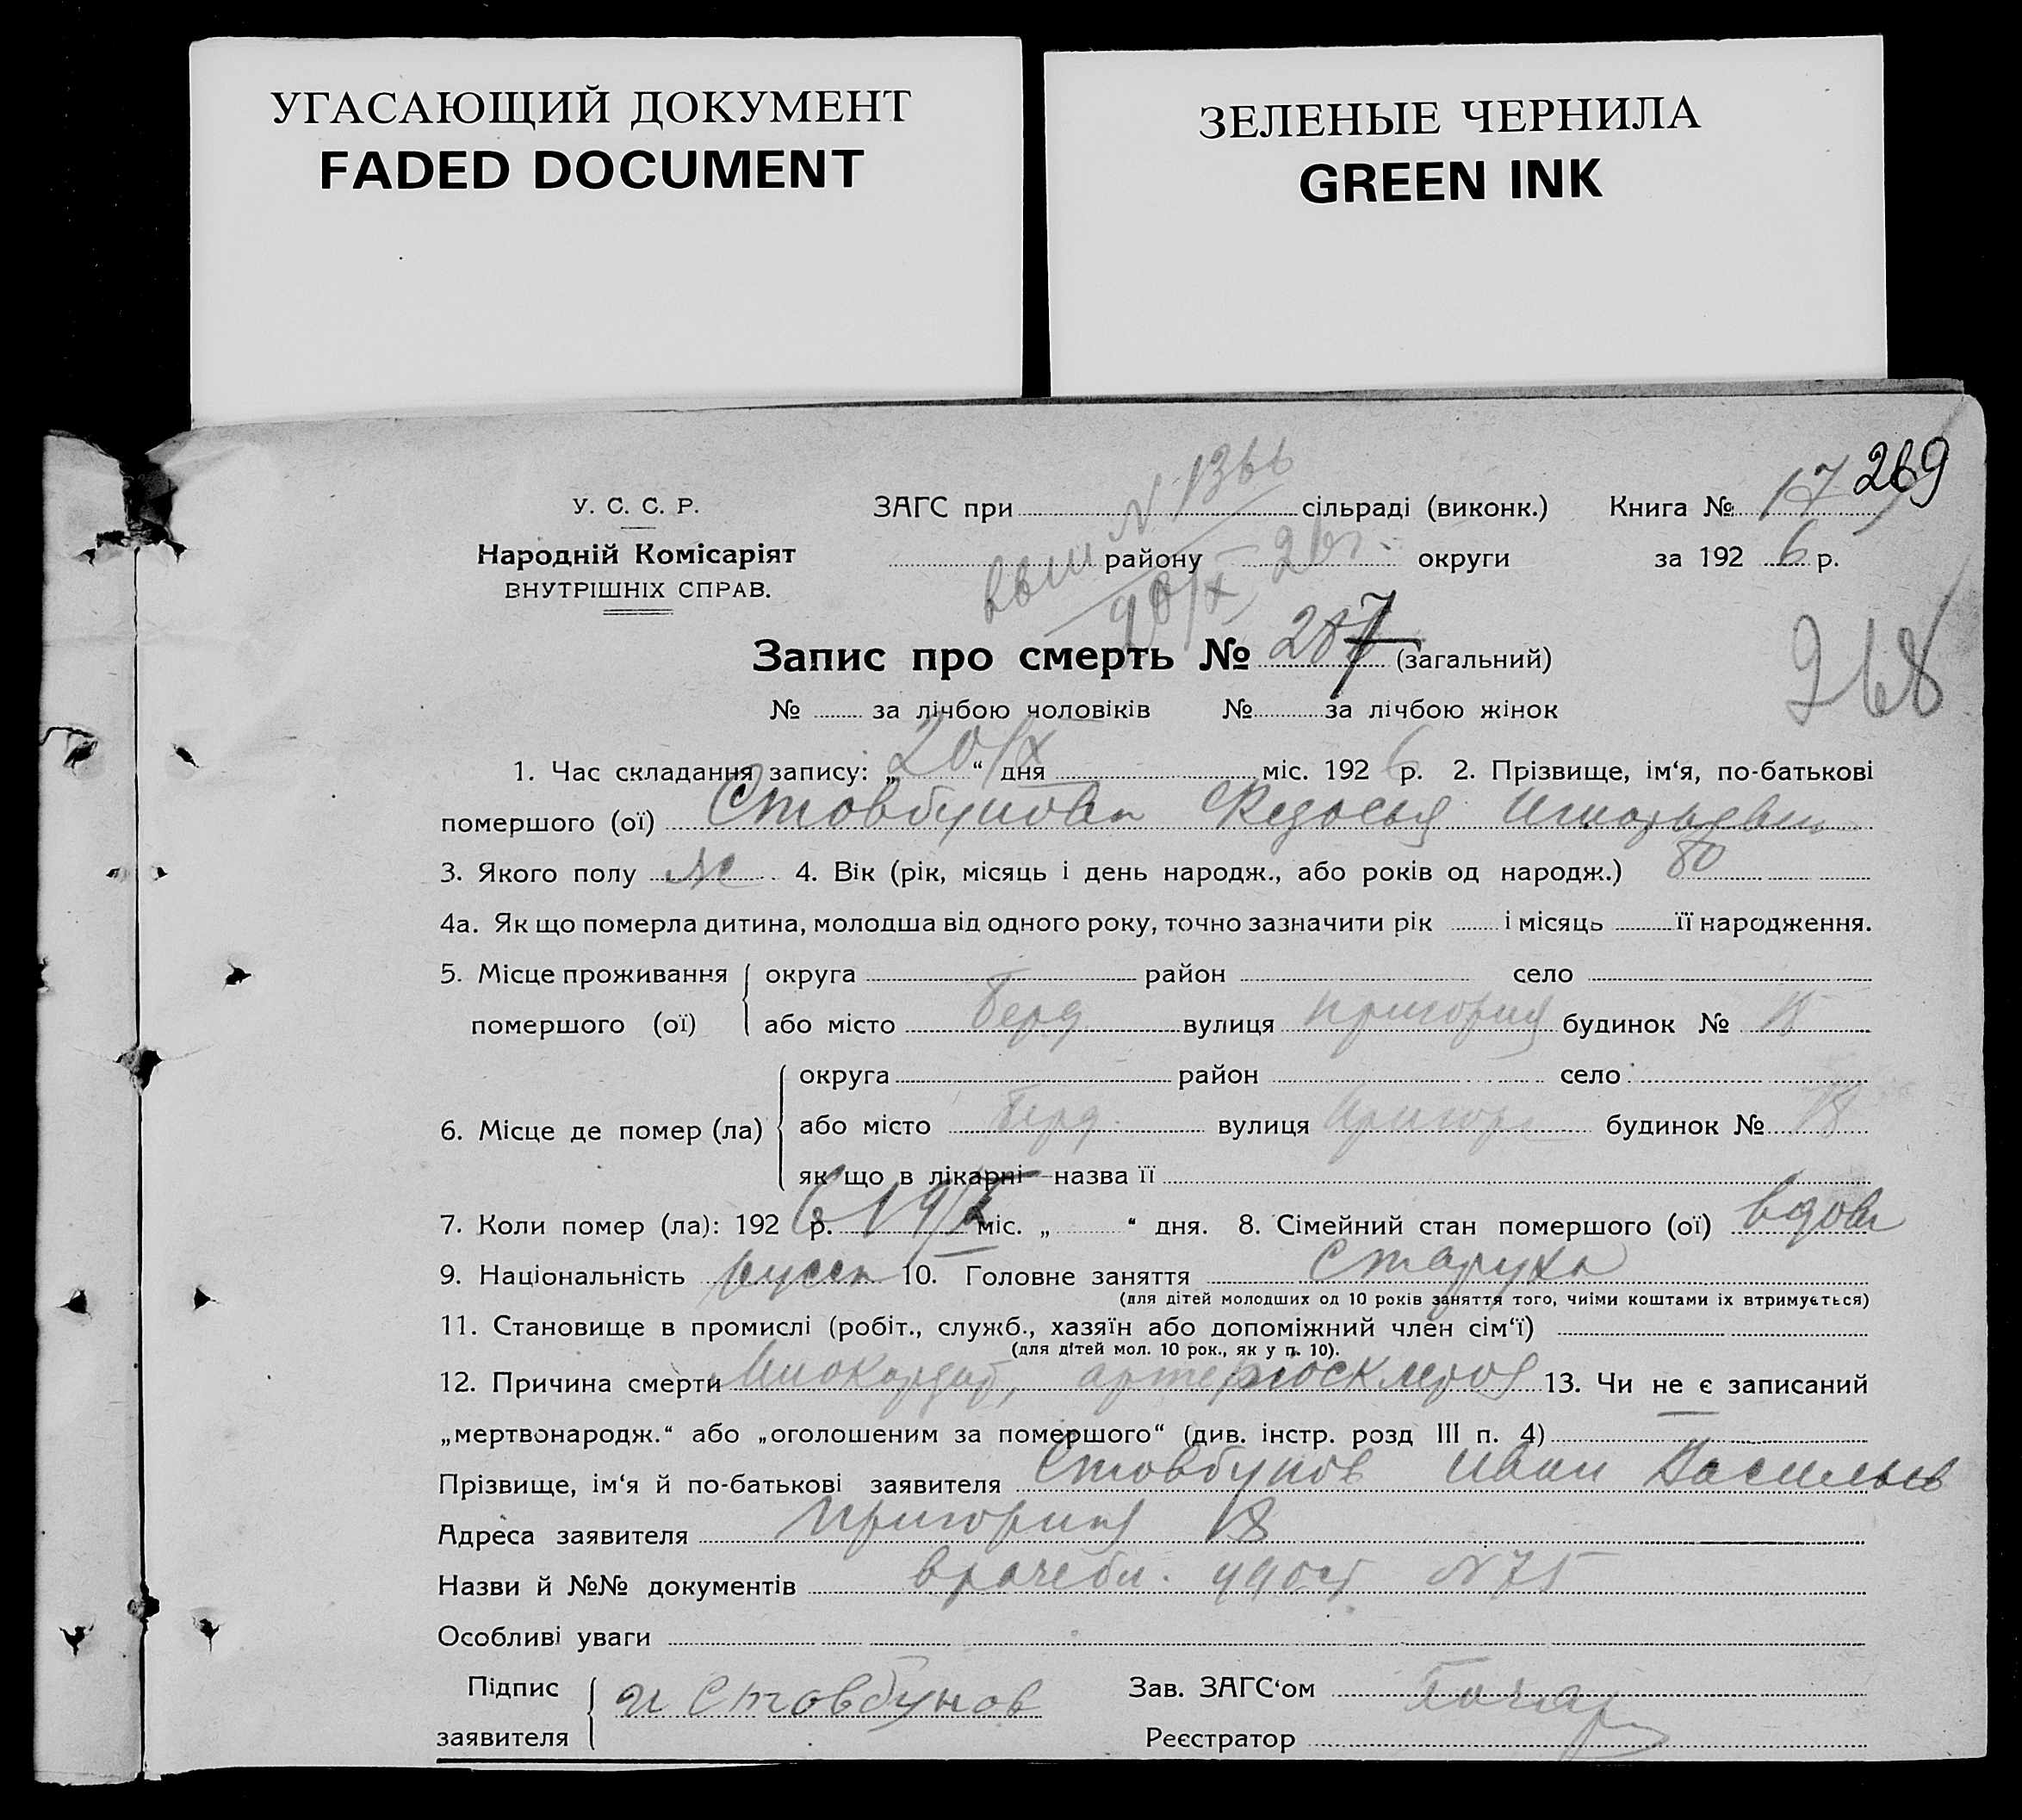 УГАСАЮЩИЙ ДОКУМЕНТ
FADED DOCUMENT
ЗЕЛЕНЫЕ ЧЕРНИЛА
GREEN INK
269
У. С. С. Р.
Народній Комісаріят
ВНУТРІШНІХ СПРАВ.
N 1366
ЗАГС при сільраді (виконк.) Книга № 17
району округи за 192 6 р.
20/X 26г.
Запис про смерть № 287 (загальний)
268
№ за лічбою чоловіків № за лічбою жінок
1. Час складання запису: „ 20/X “ дня міс. 192 6 р. 2. Прізвище, ім‘я, по-батькові
помершого (ої) Стовбунова Федосья
3. Якого полу ж 4. Вік (рік, місяць і день народж., або років од народж.) 80
4а. Як що померла дитина, молодша від одного року, точно зазначити рік і місяць її народження.
5. Місце проживання помершого (ої) округа район село
або місто Берд вулиця Пригорная будинок № 18
6. Місце де помер (ла) округа район село
або місто Берд вулиця Пригор будинок № 18
як що в лікарні назва її
7. Коли помер (ла): 192 6 р. 19/X міс. „ “ дня. 8. Сімейний стан помершого (ої) вдова
9. Національність русск 10. Головне заняття Старуха
(для дітей молодших од 10 років заняття того, чиїми коштами їх втримується)
11. Становище в промислі (робіт., служб., хазяїн або допоміжний член сім‘ї)
(для дітей мол. 10 рок., як у п. 10).
12. Причина смерти Миокардит, артериосклероз 13. Чи не є записаний
„мертвонародж.“ або „оголошеним за помершого“ (див. інстр. розд III п. 4)
Прізвище, ім‘я й по-батькові заявителя Стовбунов Иван Васильев
Адреса заявителя Пригорная 18
Назви й №№ документів врачебн. удост N 75
Особливі уваги
Підпис заявителя И Стовбунов Зав. ЗАГС‘ом
Реєстратор